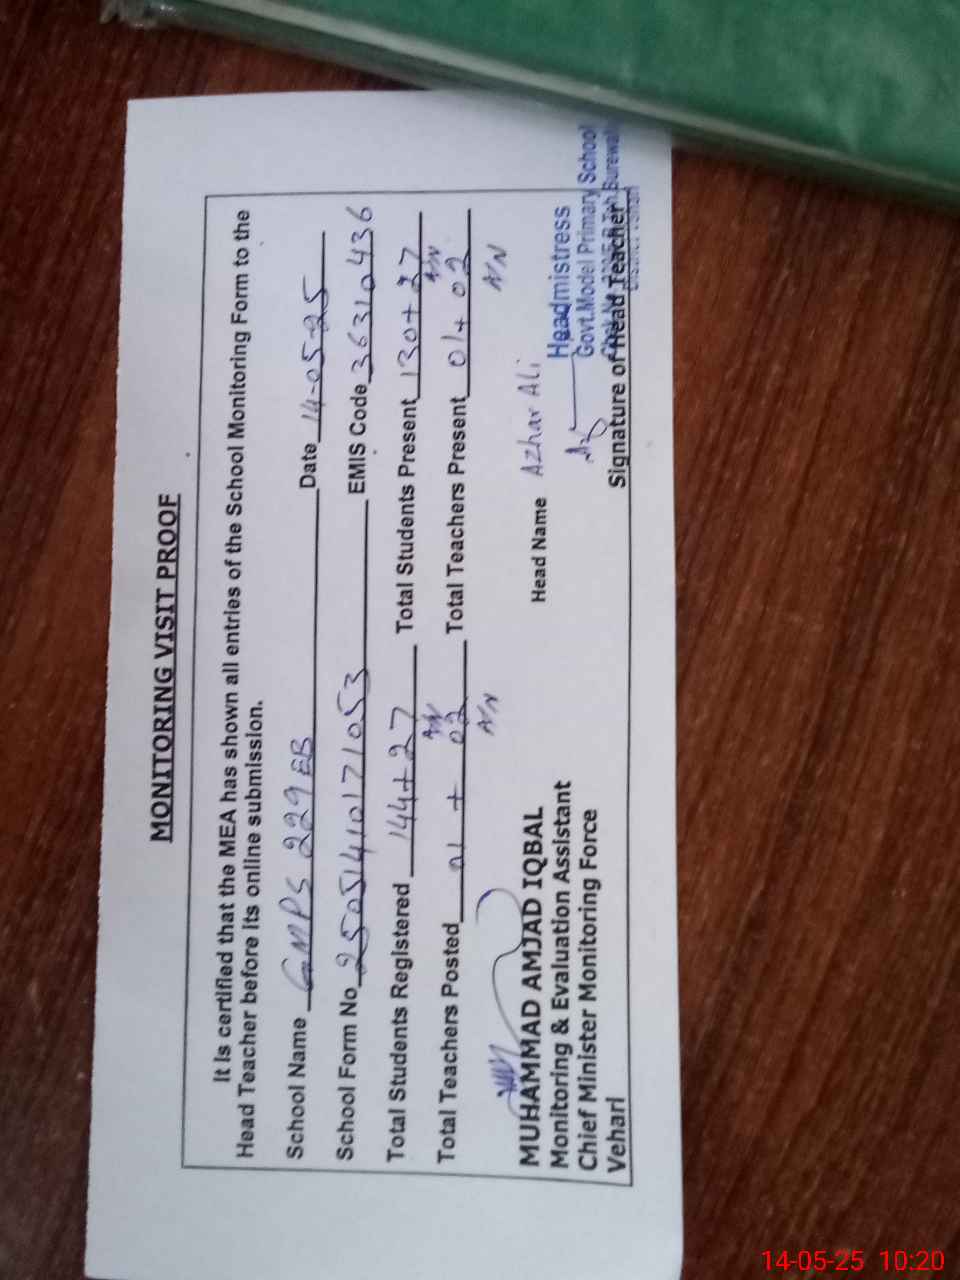 MONITORING VISIT PROOF
It is certified that the MEA has shown all entries of the School Monitoring Form to the
Head Teacher before its online submission.
School Name GMPS 229 EB Date 14-05-25
School Form No 2505141017 1053 EMIS Code 36310436
Total Students Registered 144+27 Total Students Present 130+27
NN NN
Total Teachers Posted 01 + 02 Total Teachers Present 01+02
NN NN
MUHAMMAD AMJAD IQBAL
Monitoring & Evaluation Assistant
Chief Minister Monitoring Force
Vehari
Head Name Azhar Ali
Headmistress
Govt.Model Primary School
Teh.Burewala
Signature of Head Teacher
14-05-25 10:20